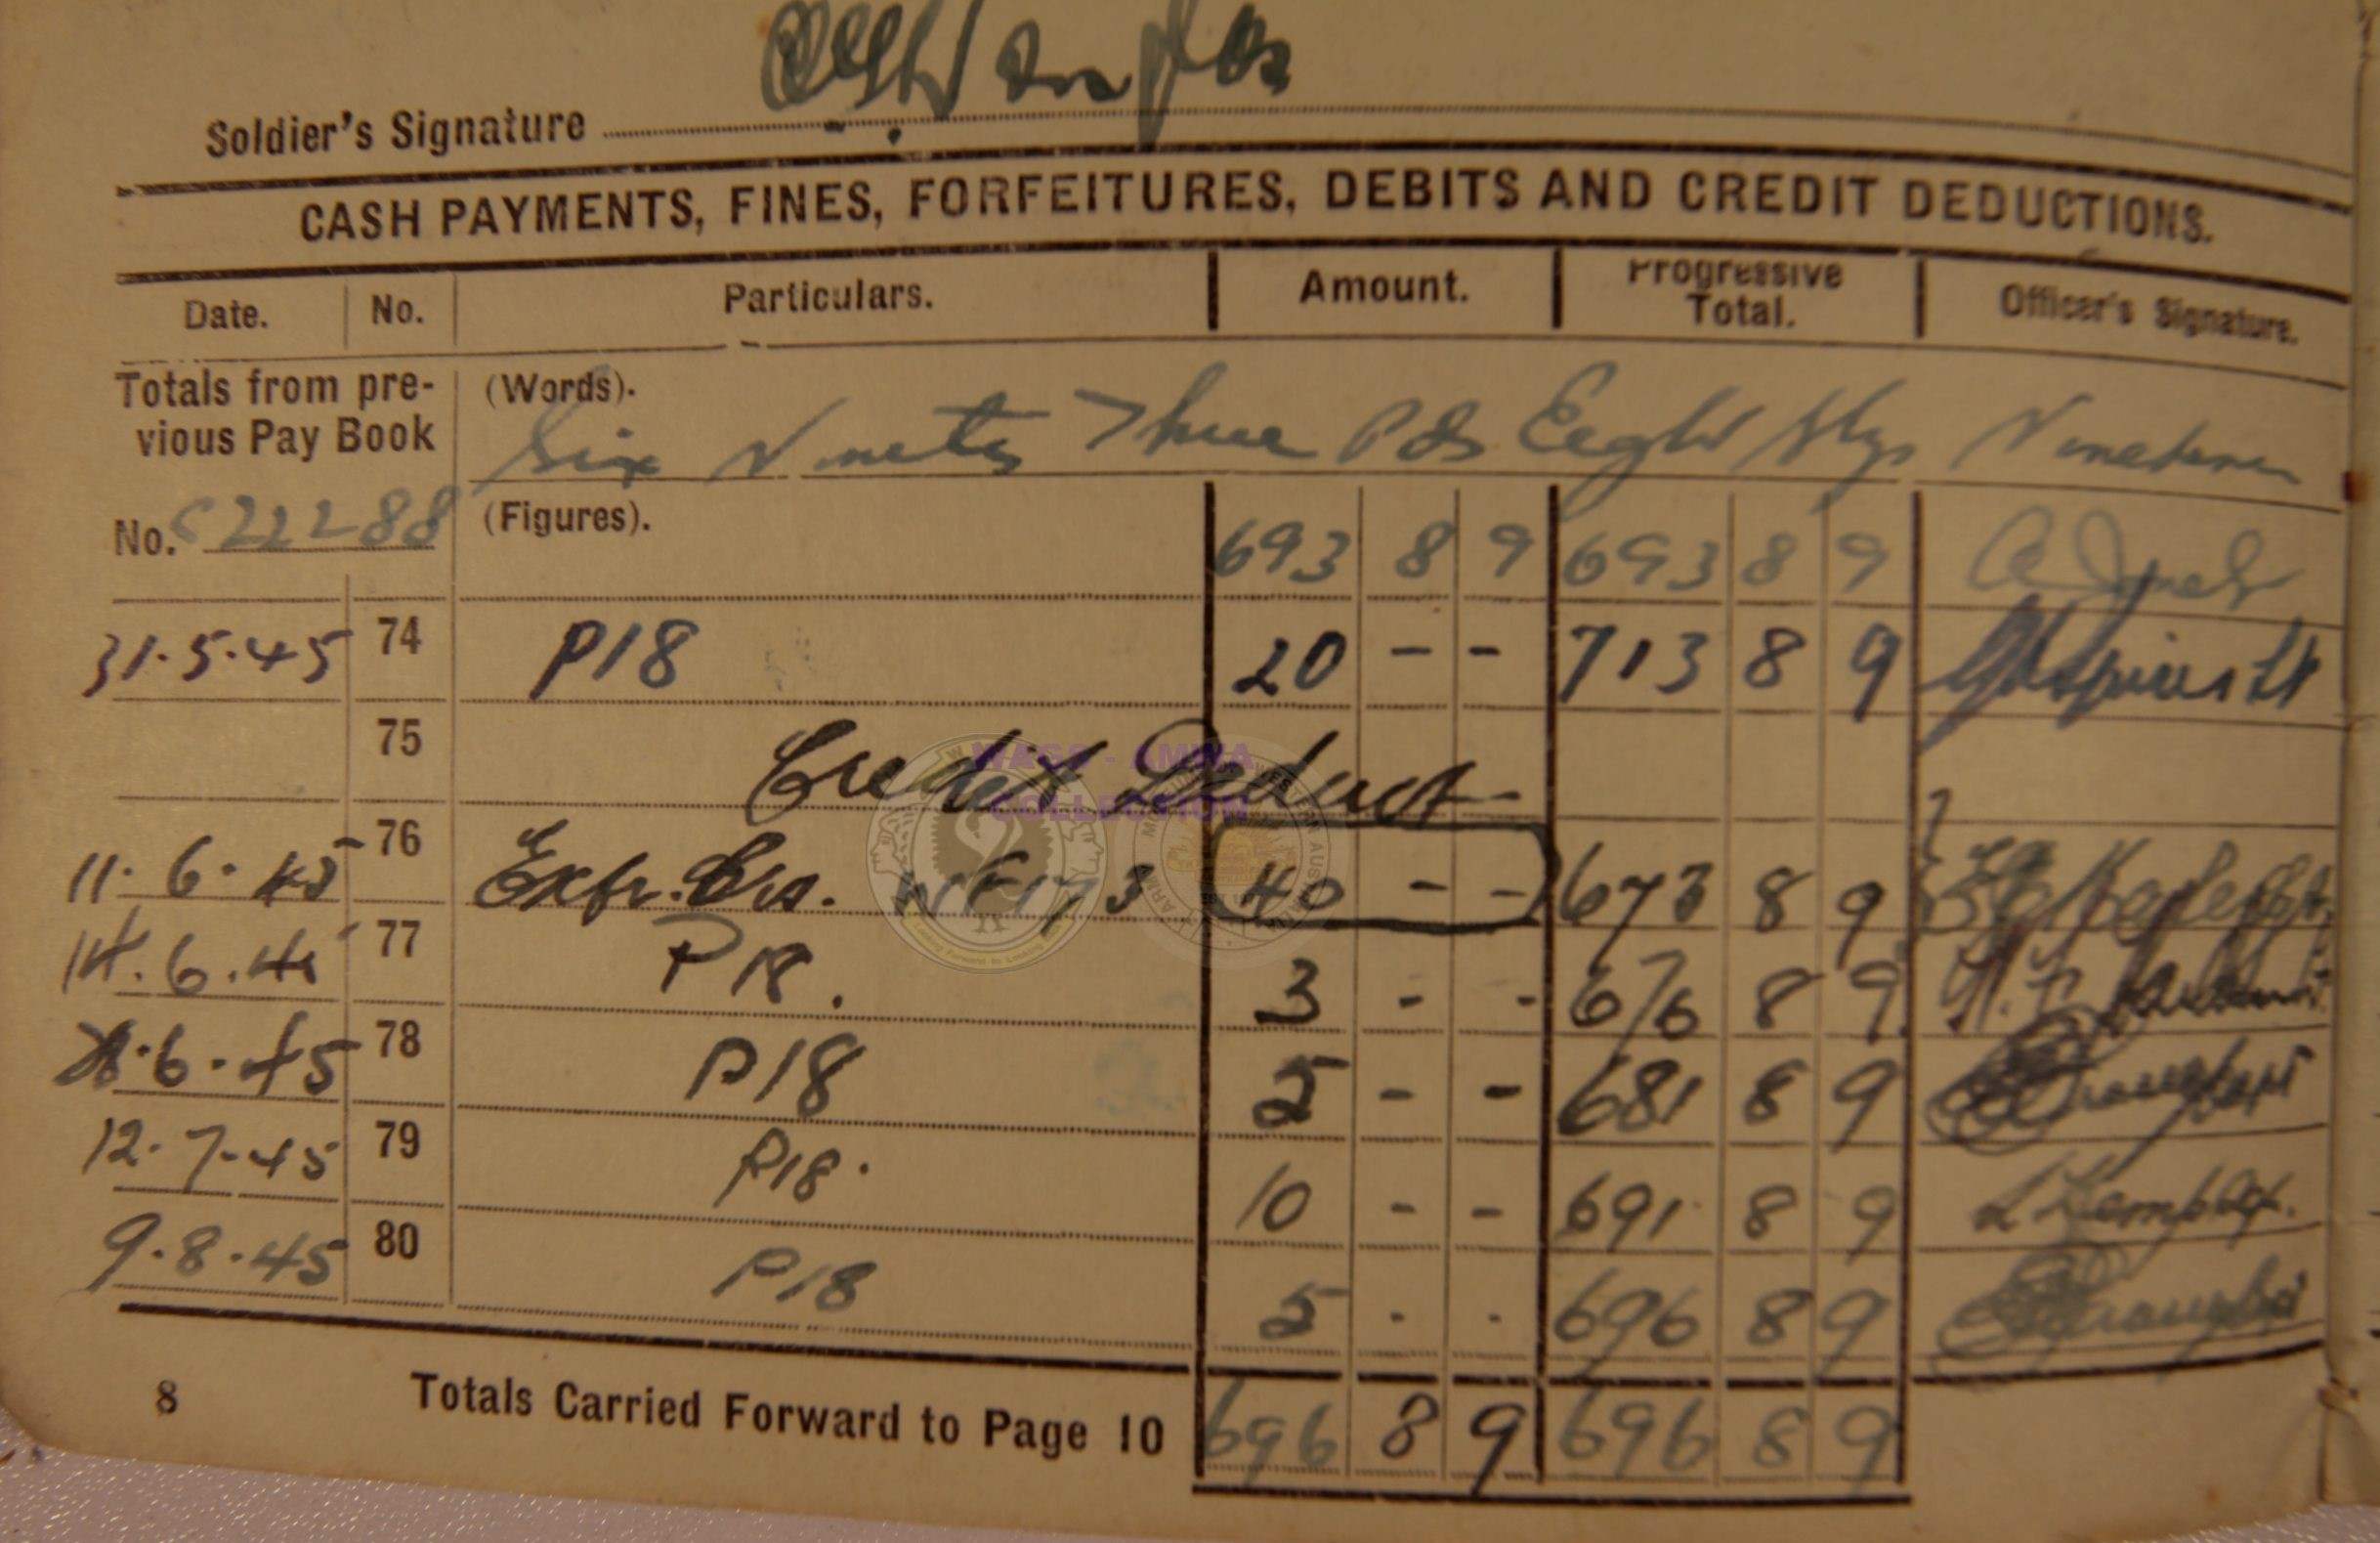 Soldier's Signature
CASH PAYMENTS, FINES, FORFEITURES, DEBITS AND CREDIT DEDUCTIONS.
Date. No. Particulars. Amount. Progressive Total. Officer's Signature.
Totals from pre-vious Pay Book (Words).
Six Ninety Three Pds Eight Shgs Ninepence
No. C22288 (Figures). 693 8 9 693 8 9
31.5.45 74 P18 20 - - 713 8 9
75 Credit Deduct
11.6.45 76 WF173 40 - - 673 8 9
14.6.45 77 P18. 3 - - 676 8 9
6.45 78 P18 5 - - 681 8 9
12.7.45 79 P18. 10 - - 691 8 9
9.8.45 80 P18 5 - - 696 8 9
8 Totals Carried Forward to Page 10 696 8 9 696 8 9
WAGS - AMWA
COLLECTION